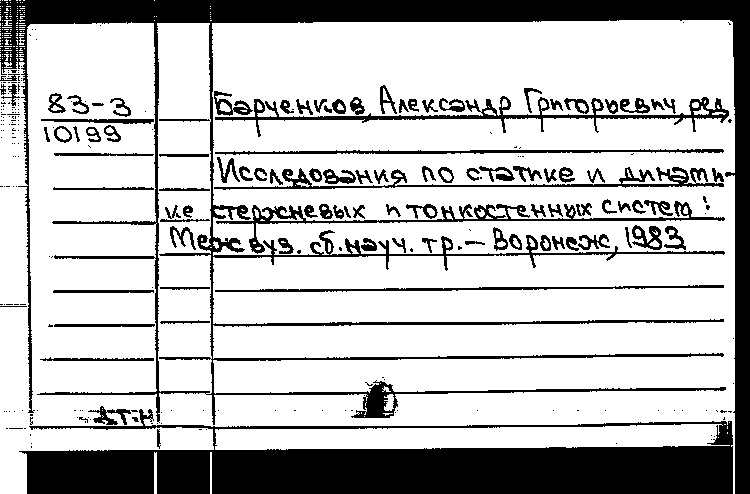 83-3
Барченков, Александр Григорьевич, ред.
10199
Исследования по статике и динами-
ке стержневых и тонкостенных систем:
Межвуз. сб. науч. тр. – Воронеж, 1983